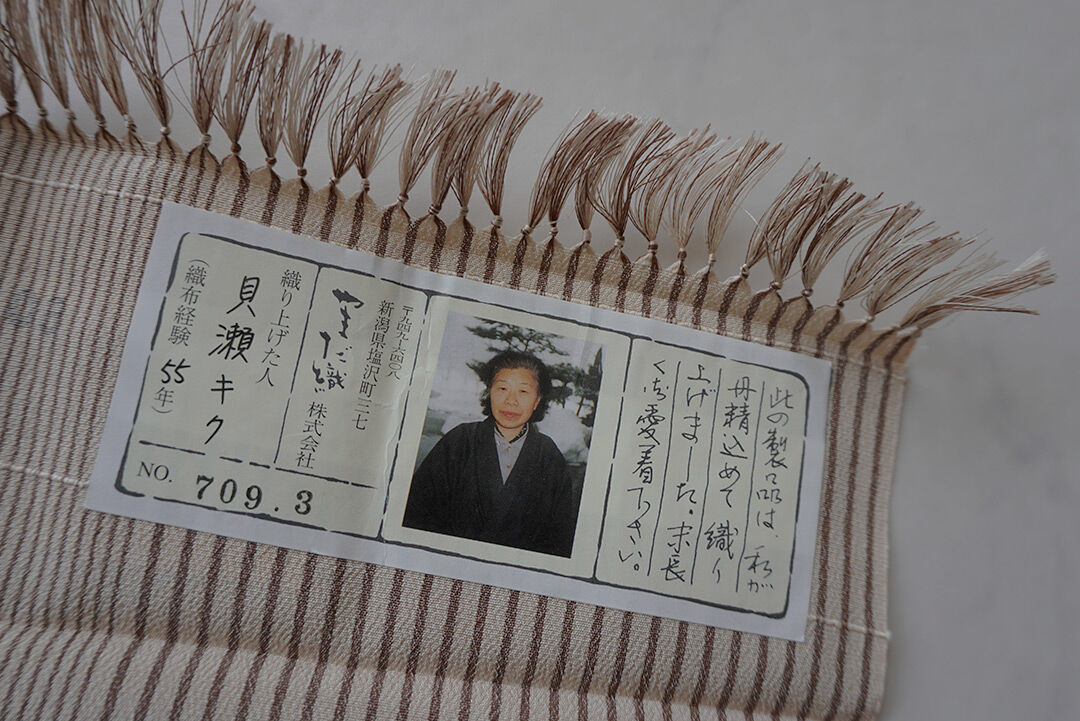 此の製品は、私が
丹精込めて織り
上げました。末長
くご愛着下さい。
〒九四九–六四〇八
新潟県塩沢町三七
やまだ織 株式会社
織り上げた人
貝瀬キク
(織布経験 55年)
NO. 709.3